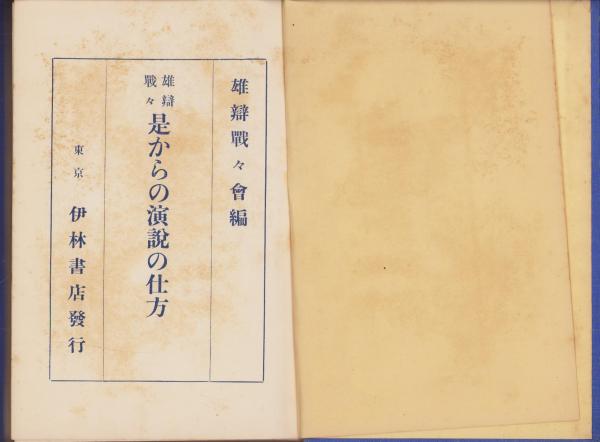 雄辯戰々會編
雄辯
戰々
是からの演說の仕方
東京 伊林書店發行